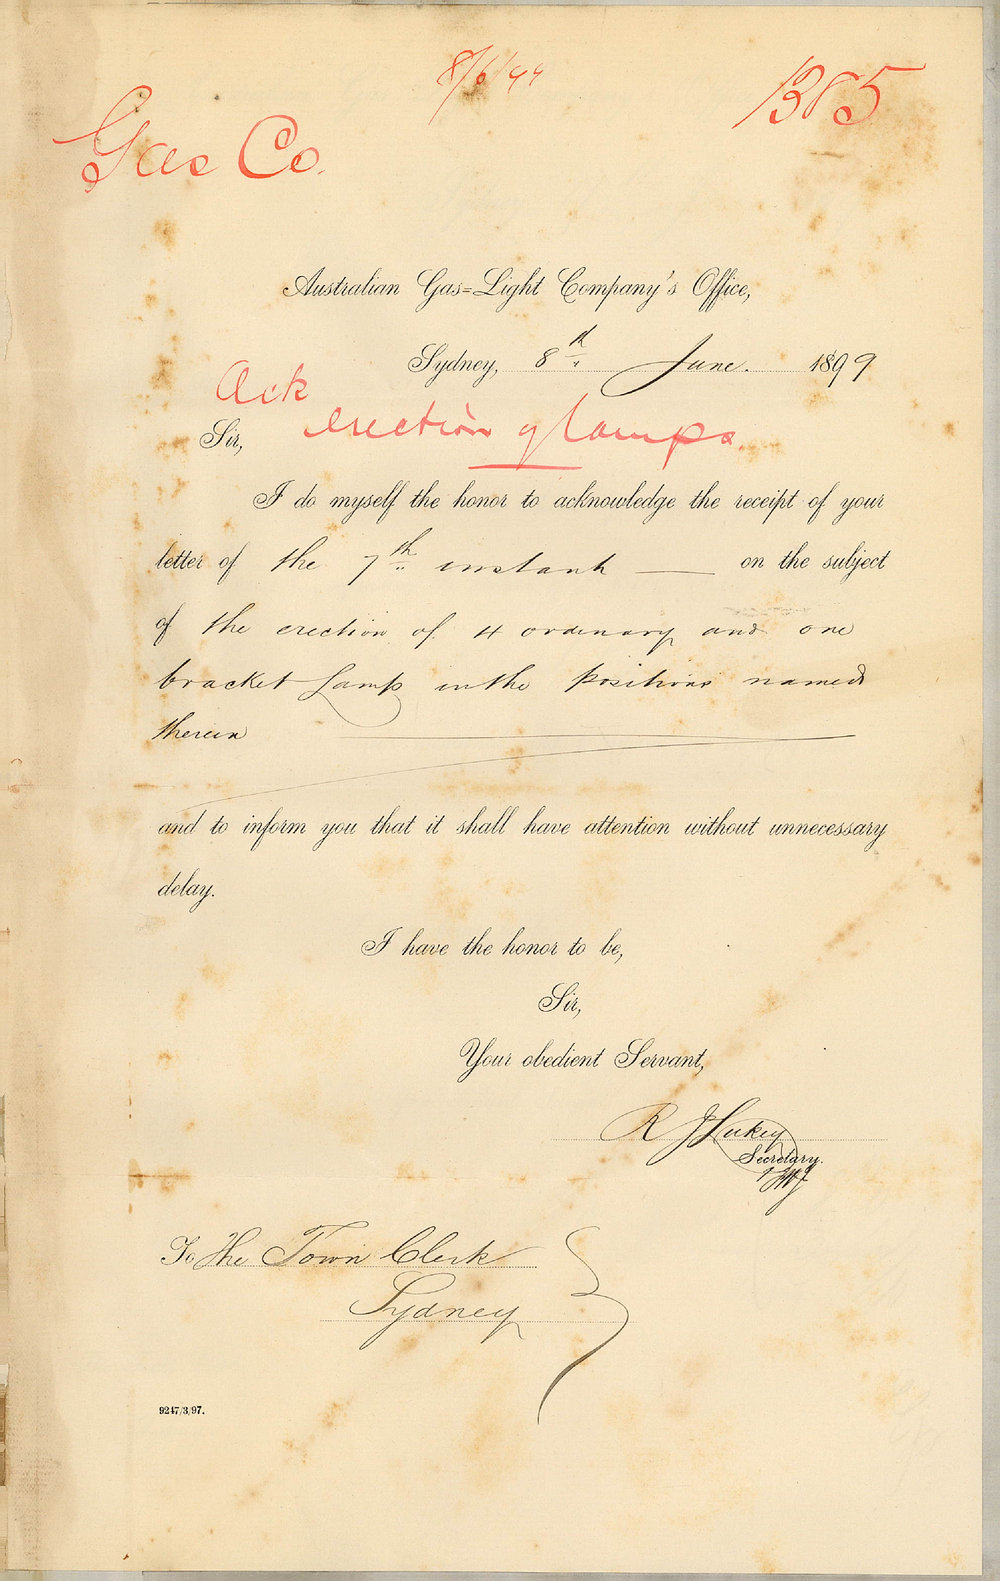 8/6/99
1385
Gas Co.
Australian Gas=Light Company's Office,
Sydney, 8th June. 1899
Ack
erection of lamps.
Sir,
I do myself the honor to acknowledge the receipt of your
letter of the 7th instant — on the subject
of the erection of 4 ordinary and one
bracket Lamp in the positions named
therein
and to inform you that it shall have attention without unnecessary
delay.
I have the honor to be,
Sir,
Your obedient Servant,
R J Lukey
Secretary.
To The Town Clerk
Sydney
9247/3/97.